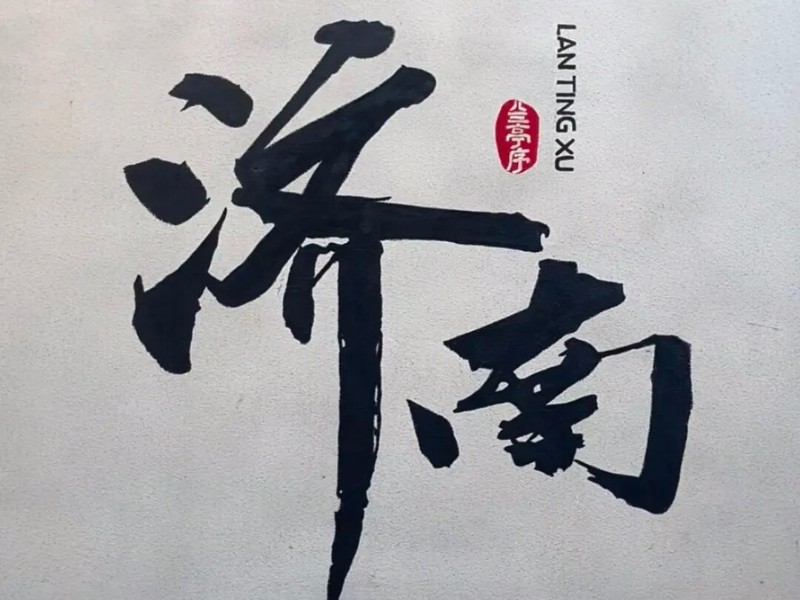 济南
兰亭序
LAN TING XU